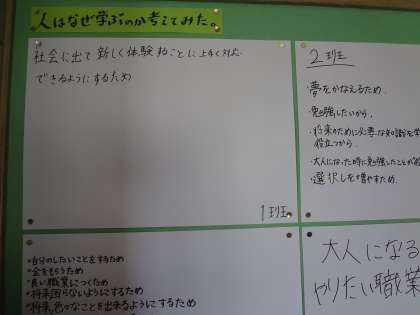 人はなぜ学ぶのか考えてみた。
社会に出て新しく体験することに上手く対応
できるようにするため
1班
2班
・夢をかなえるため
・勉強したいから。
・将来のために必要な知識を学
役立つから。
・大人になった時に勉強したことが
・選択しを増やすため
•自分のしたいことをするため
•金をもらうため
•良い職業につくため
•将来困らないようにするため
•将来、色々なことを出来るようにするため
大人になる
やりたい職業